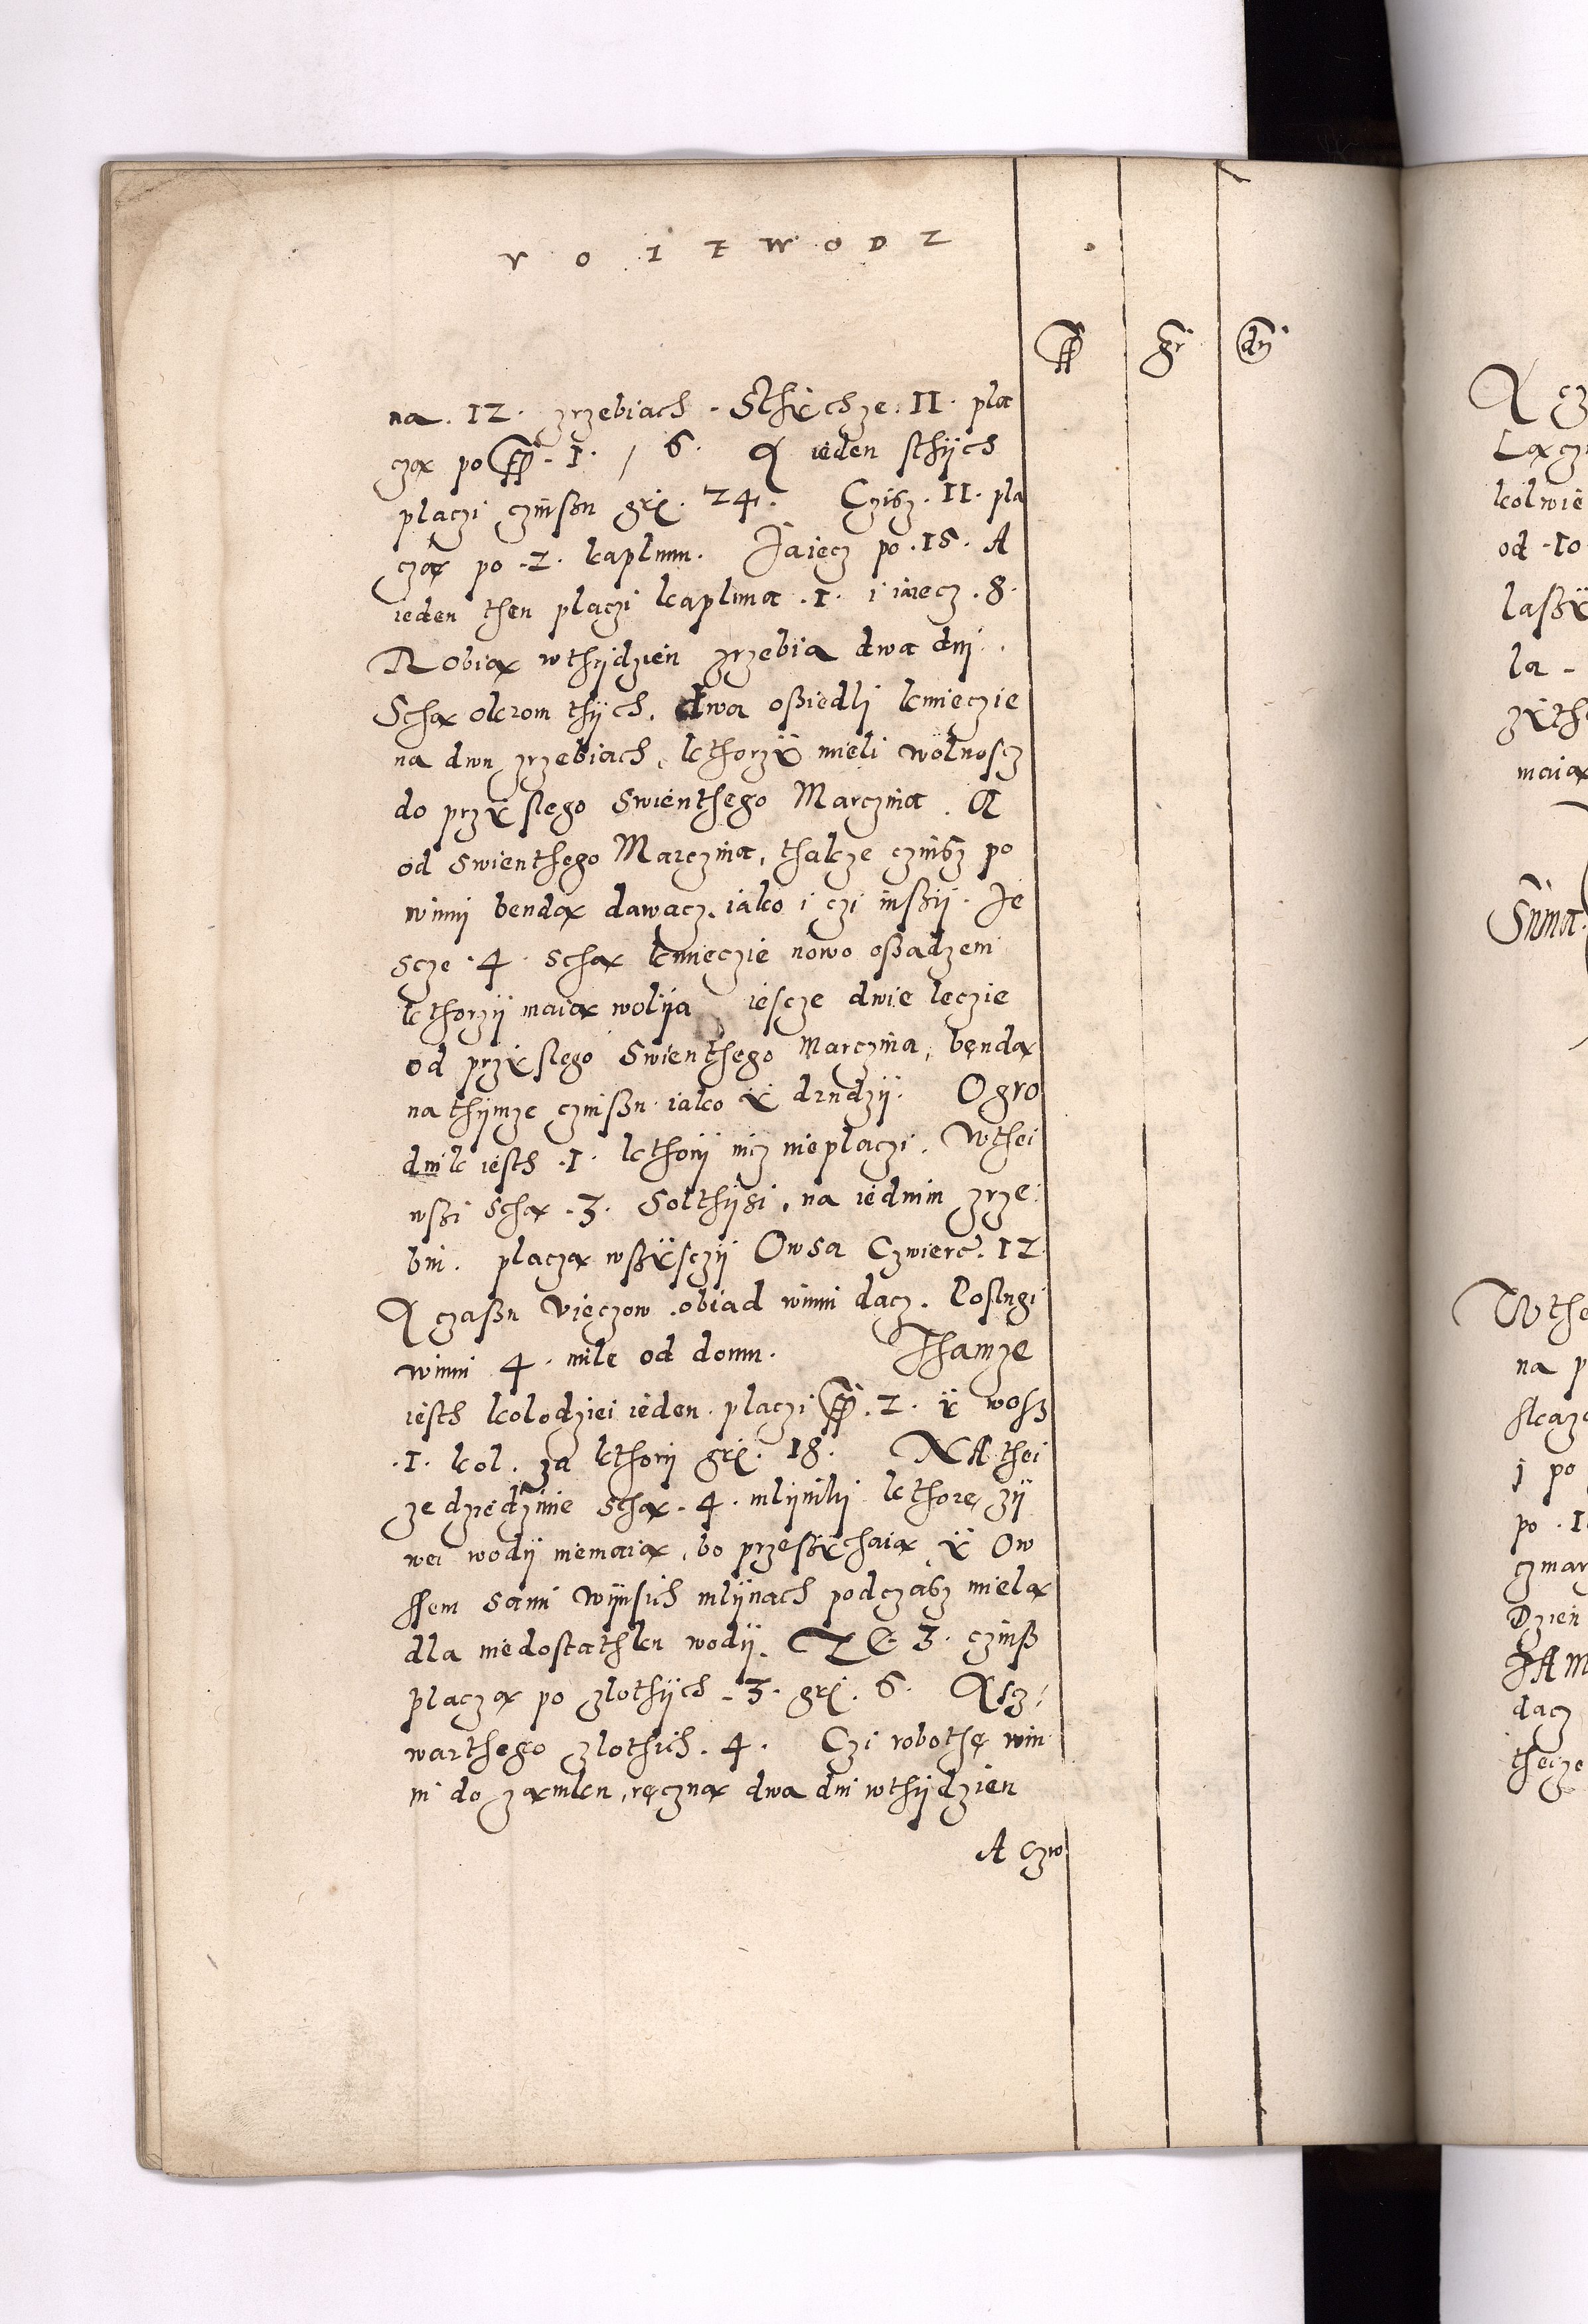 V O I E W O D Z
fl gr dni
na . 12 . zrzebiach . Sthychze . 11 . pla
czą po fl . 1 . / 6 . A ieden sthijch
placzi czinßu grꝭ . 24 . Czißz . 11 . pla
czą po . 2 . kaplunu . Jaiecz po . 15 . A
ieden then placzi kapluna . 1 . i iaiecz . 8 .
Robią wthijdzien zrzebia dwa dni .
Schą okrom thijch . dwa oßiedli kmieczie
na dwu zrzebiach , kthorzÿ mieli wolnoscz
do przyslego Swienthego Marczina . A
od Swienthego Marczina , thakze czinßz po
winni bendą dawacz . iako i czi inßij . Je
scze . 4 . schą kmieczie nowo oßadzeni
kthorzij maią wolija iescze dwie leczie
od przyslego Swienthego Marczina , bendą
na thijmze czinßu iako ÿ drudzij . Ogro
dnik iesth . 1 . kthorij nicz nieplaczi . Wthei
wßi Schą . 3 . Solthijßi , na iednim zrze
biu . placzą wßÿsczij Owsa Czwierc . 12
A czaßu Vieczow . obiad winni dacz . Poslugi
winni 4 . mile od domu . Thamze
iesth kolodziei ieden . placzi fl . 2 . ÿ wosz
. 1 . kol . za kthorij grꝭ . 18 . NA thei
ze dziedzinie schą . 4 . mlijniki kthore zij
wei wodij niemaią , bo przeßÿchaią ÿ Ow
ssem sami wijnsich mlijnach podczaßz mielą
dla niedostathku wodij . TE . 3 . czinß
placzą po zlothijch . 3 . grꝭ . 6 . A scz
warthego zlothich . 4 . Czi robothę win
ni do zamku , ręczną dwa dni wthijdzien
A czw